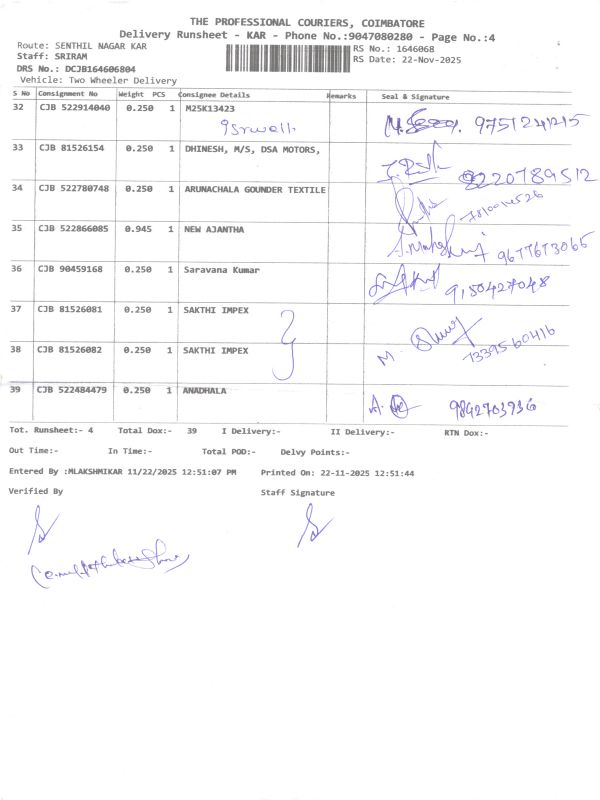 THE PROFESSIONAL COURIERS, COIMBATORE
Delivery Runsheet - KAR - Phone No.:9047080280 - Page No.:4
Route: SENTHIL NAGAR KAR
RS No.: 1646068
Staff: SRIRAM
RS Date: 22-Nov-2025
DRS No.: DCJB164606804
Vehicle: Two Wheeler Delivery
S No Consignment No Weight PCS Consignee Details Remarks Seal & Signature
32 CJB 522914040 0.250 1 M25K13423
33 CJB 81526154 0.250 1 DHINESH, M/S, DSA MOTORS,
34 CJB 522780748 0.250 1 ARUNACHALA GOUNDER TEXTILE
35 CJB 522866085 0.945 1 NEW AJANTHA 9677673065
36 CJB 90459168 0.250 1 Saravana Kumar 9150427048
37 CJB 81526081 0.250 1 SAKTHI IMPEX
38 CJB 81526082 0.250 1 SAKTHI IMPEX M. 7339560416
39 CJB 522484479 0.250 1 ANADHALA A. 9842703936
Tot. Runsheet:- 4 Total Dox:- 39 I Delivery:- II Delivery:- RTN Dox:-
Out Time:- In Time:- Total POD:- Delvy Points:-
Entered By :MLAKSHMIKAR 11/22/2025 12:51:07 PM Printed On: 22-11-2025 12:51:44
Verified By Staff Signature